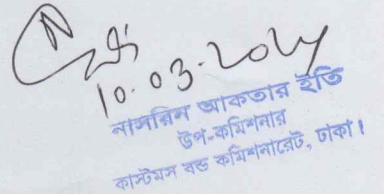 10.03.202৮
নাসরিন আকতার ইতি
উপ-কমিশনার
কাস্টমস বন্ড কমিশনারেট, ঢাকা।